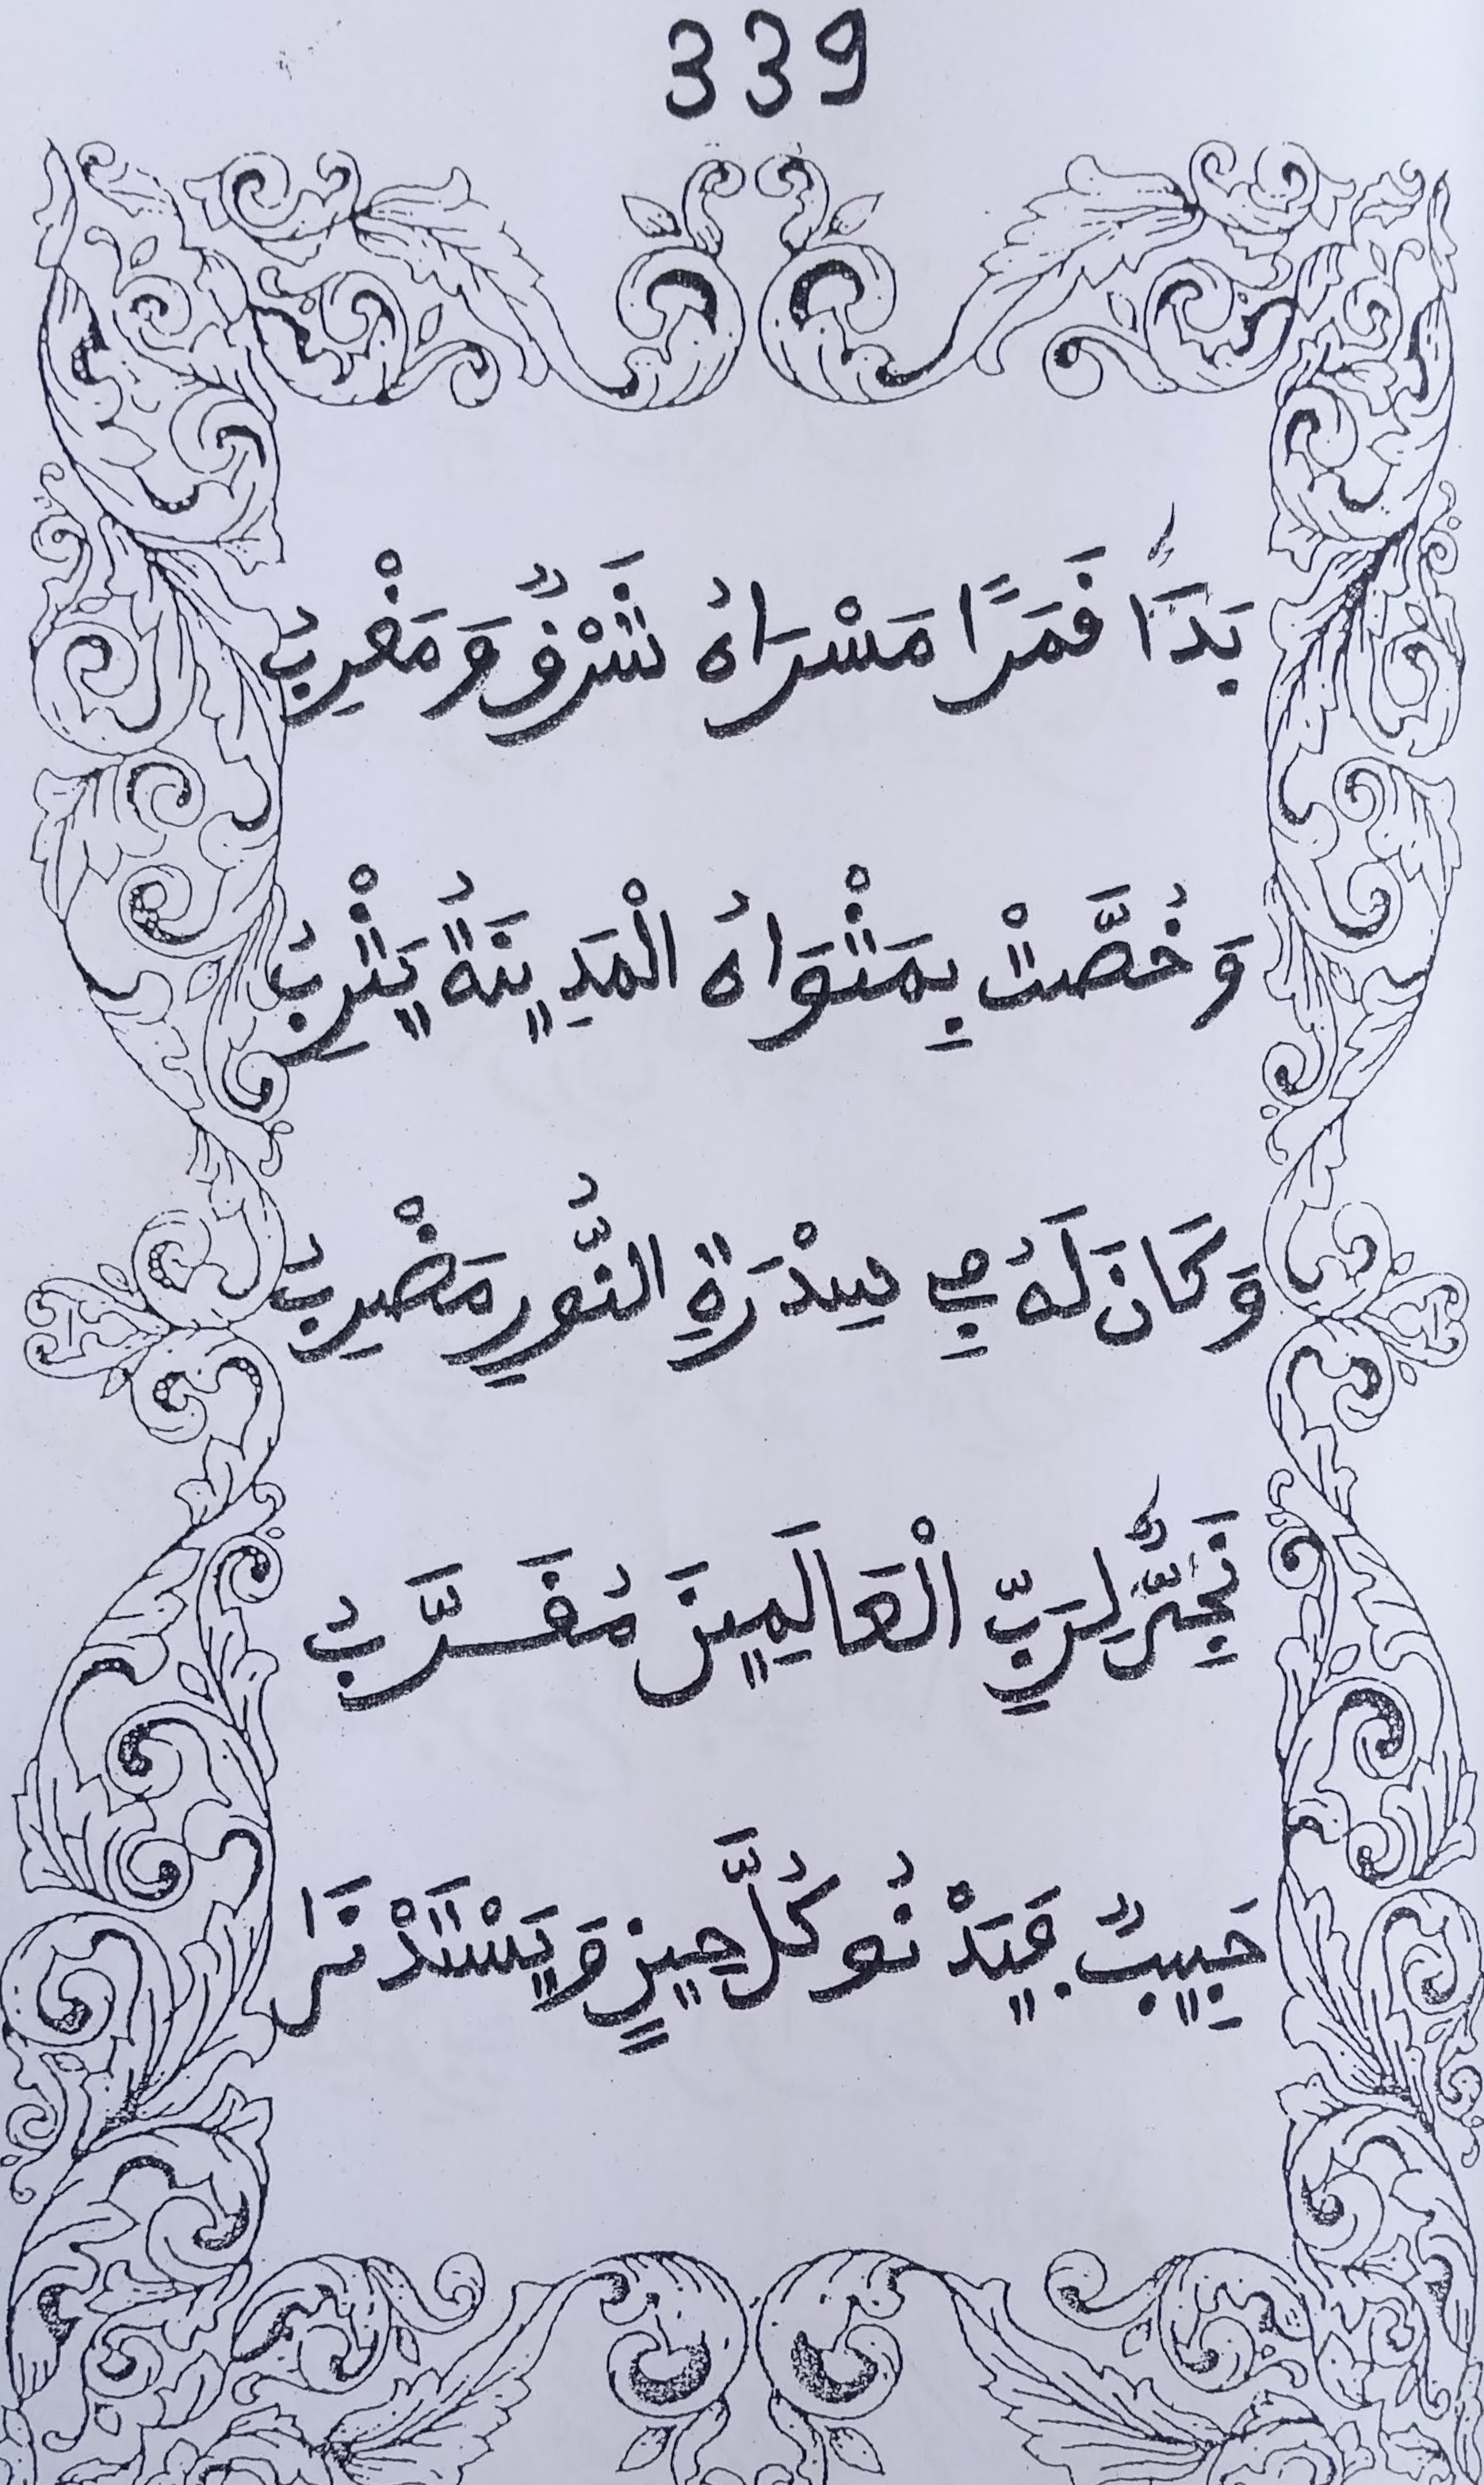 339
بَدَا قَمَرًا مَسْرَاهُ شَرْقٌ وَمَغْرِبُ
وَخُصَّتْ بِمَثْوَاهُ الْمَدِينَةُ يَثْرِبُ
وَكَانَ لَهُ فِي سِدْرَةِ النُّورِ مَضْرِبُ
نَجِىٌّ لِرَبِّ الْعَالَمِينَ مُقَرَّبُ
حَبِيبٌ فَيَدْنُو كُلَّ حِينٍ وَيُسْتَدْنَى